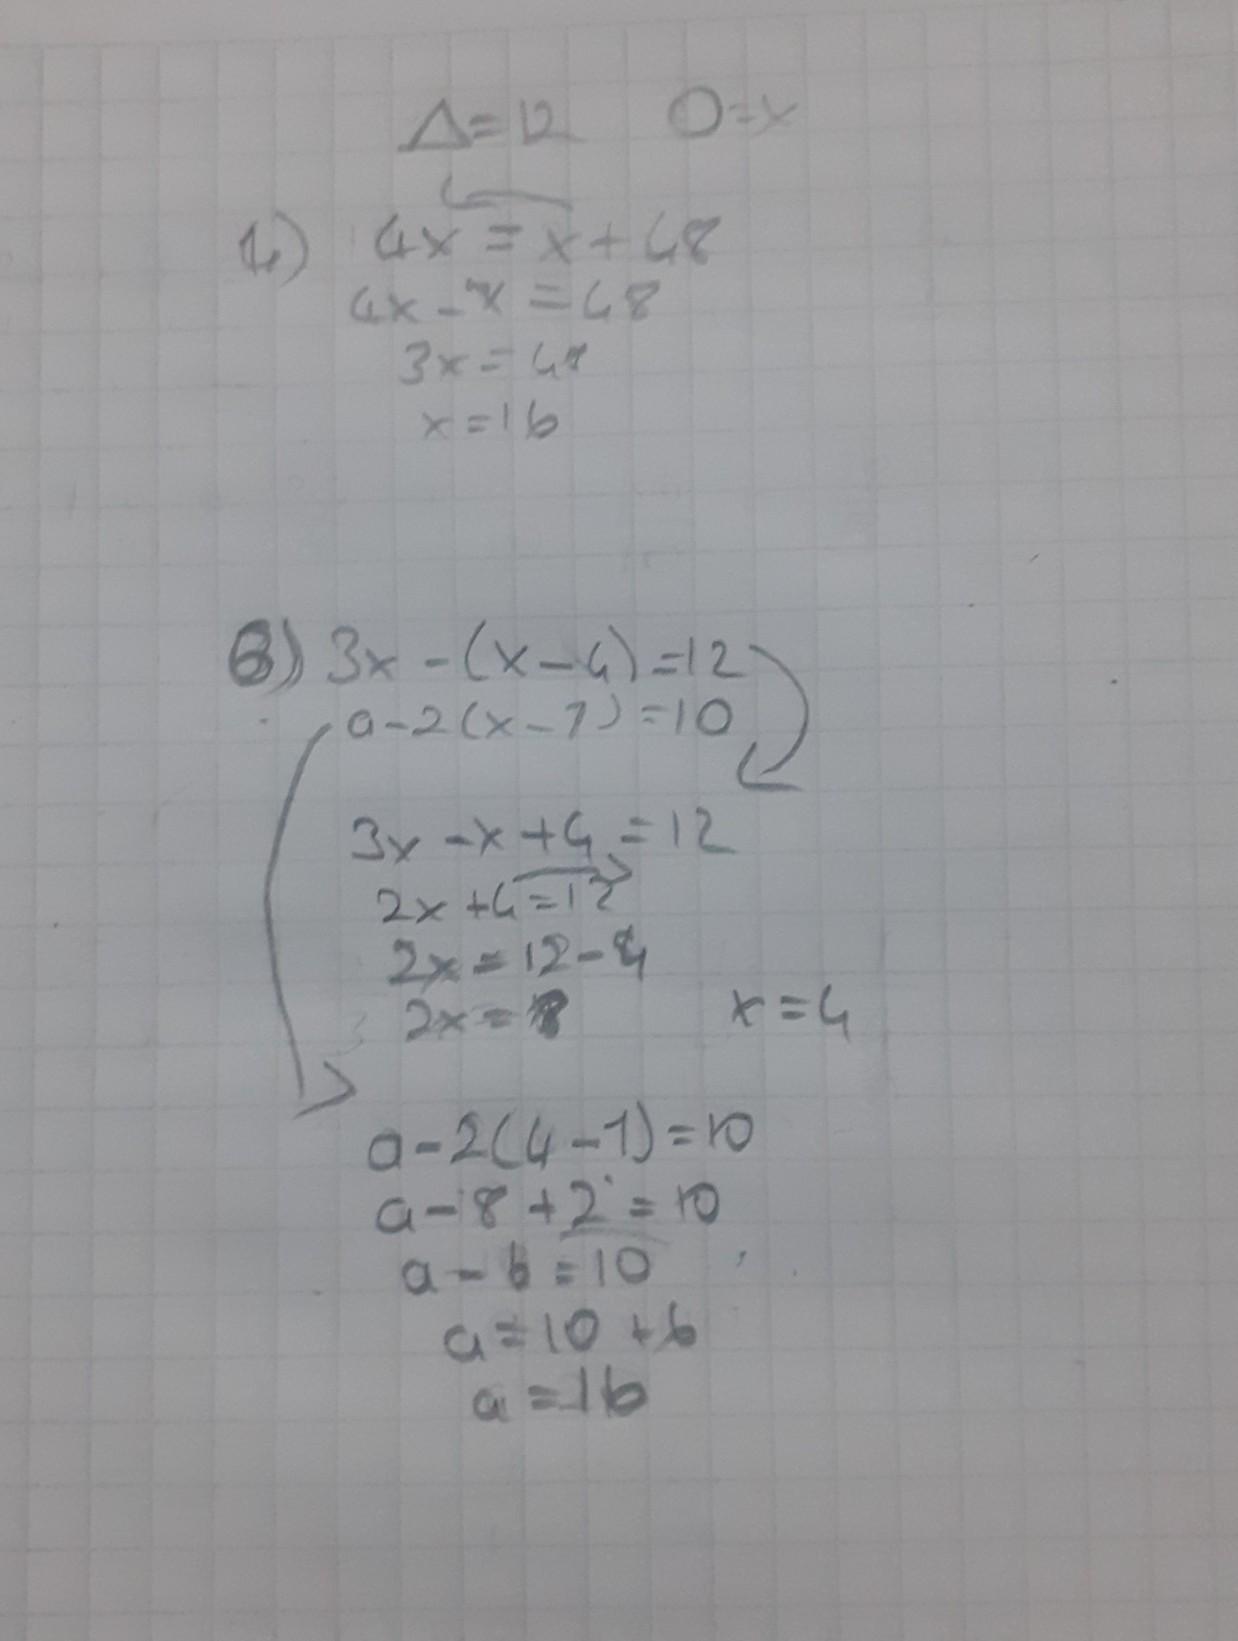 Δ=12 O=x
1) 4x = x + 48
4x - x = 48
3x = 48
x = 16
3x - (x - 4) = 12
a - 2(x - 1) = 10
3x - x + 4 = 12
2x + 4 = 12
2x = 12 - 4
2x = 8 x = 4
a - 2(4 - 1) = 10
a - 8 + 2 = 10
a - 6 = 10
a = 10 + 6
a = 16